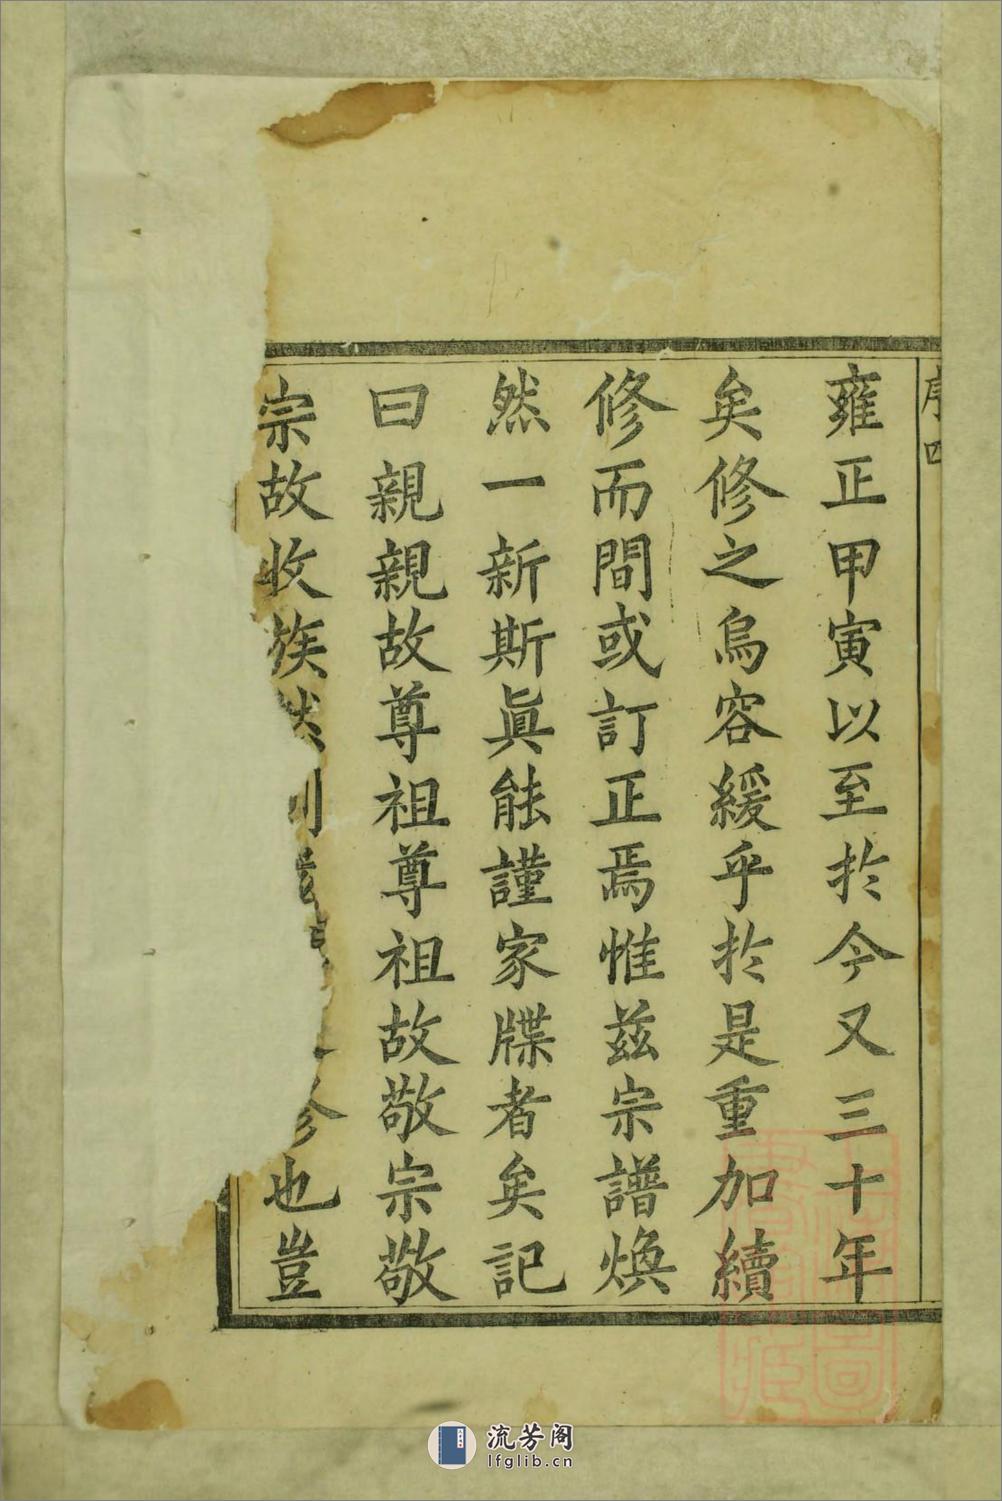 序四
雍正甲寅以至於今又三十年
矣修之烏容緩乎於是重加續
修而間或訂正焉惟茲宗譜煥
然一新斯眞能謹家牒者矣記
曰親親故尊祖尊祖故敬宗敬
宗故收族然則修也豈
流芳阁
lfglib.cn